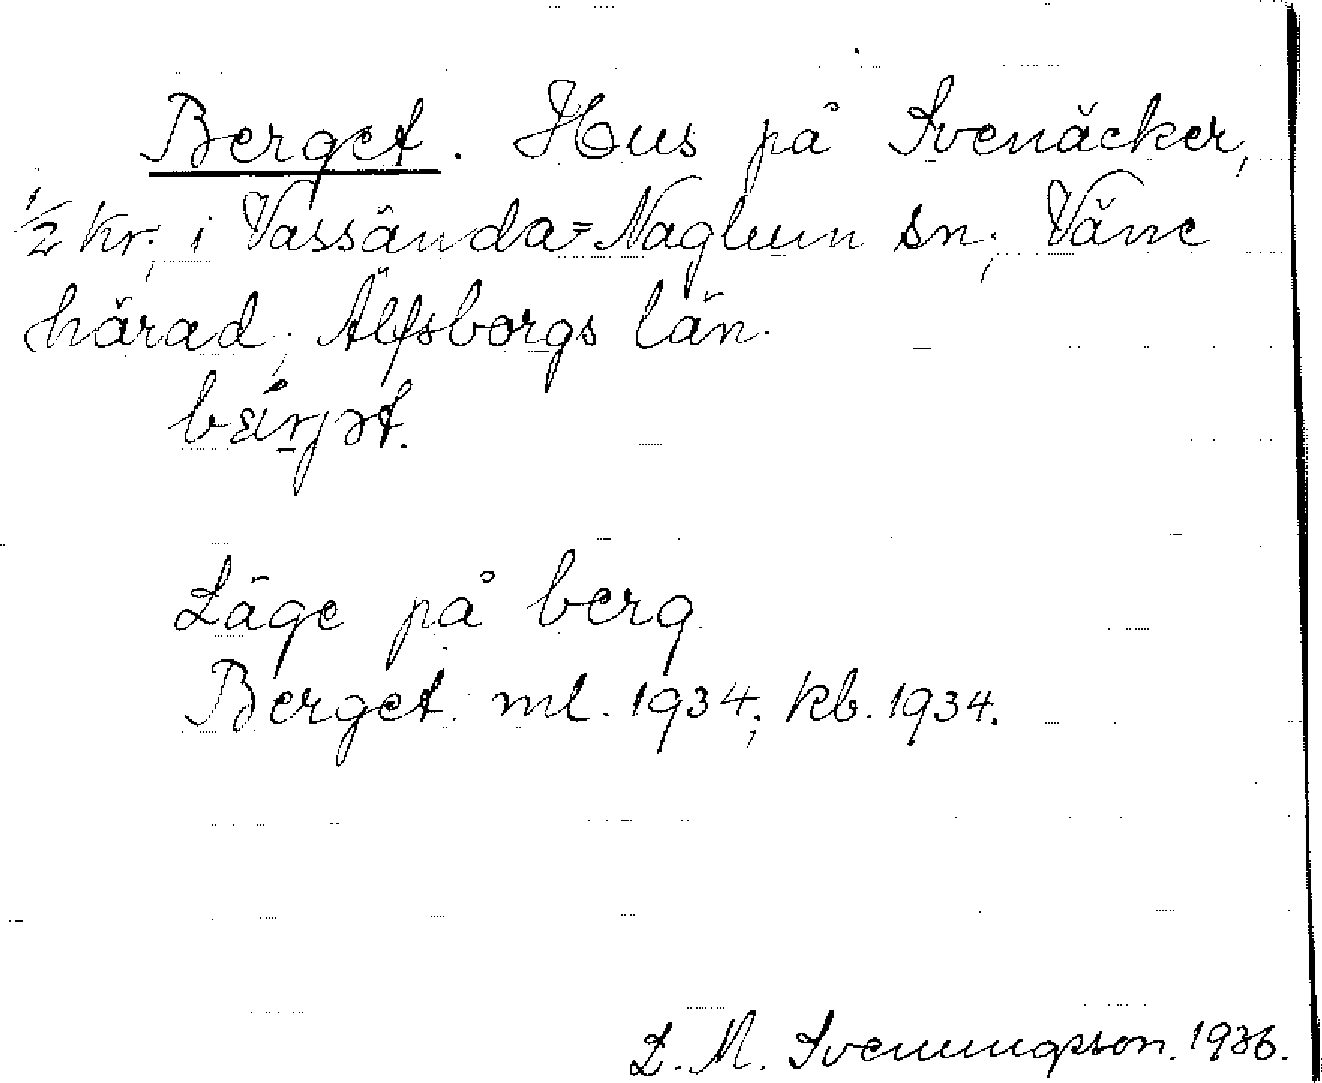 Berget. Hus på Svenäcker,
1/2 kr, i Vassända=Naglum sn, Väne
härad, Älfsborgs län.
Läge på berg
Berget ml. 1934, kb. 1934.
D. M. Svenungsson. 1936.